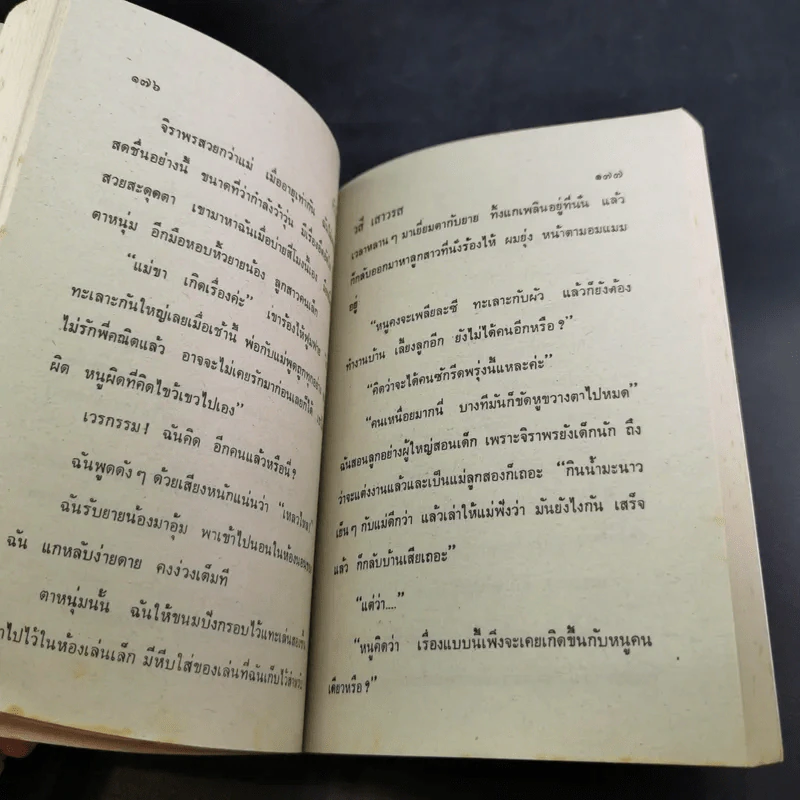 ๑๗๖
จิราพรสวยกว่าแม่ เมื่ออายุเท่ากัน
สดชื่นอย่างนี้ ขนาดที่ว่ากำลังว้าวุ่น มีเรื่อง
สวยสะดุดตา เขามาหาฉันเมื่อบ่ายสี่โมงนี้เอง
ตาหนุ่ม อีกมือหอบหิ้วยายน้อง ลูกสาวคนเล็ก
“แม่ขา เกิดเรื่องค่ะ” เขาร้องไห้
ทะเลาะกันใหญ่เลยเมื่อเช้านี้ พ่อกับแม่พูดถูกทุกอย่าง
ไม่รักพี่คณิตแล้ว อาจจะไม่เคยรักมาก่อนเลยก็ได้
ผิด หนูผิดที่คิดไขว้เขวไปเอง”
เวรกรรม! ฉันคิด อีกคนแล้วหรือนี่?
ฉันพูดดังๆ ด้วยเสียงหนักแน่นว่า “เหลวไหล!”
ฉันรับยายน้องมาอุ้ม พาเข้าไปนอนในห้องนอนของ
ฉัน แกหลับง่ายดาย คงง่วงเต็มที
ตาหนุ่มนั้น ฉันให้ขนมปังกรอบไว้แทะเล่น
ไปไว้ในห้องเล่นเล็ก มีหีบใส่ของเล่นที่ฉันเก็บไว้
๑๗๗
วสี เสาวรส
เวลาหลานๆ มาเยี่ยมตากับยาย ทั้งแกเพลินอยู่ที่นั่น แล้ว
ก็กลับออกมาหาลูกสาวที่นั่งร้องไห้ ผมยุ่ง หน้าตามอมแมม
อยู่
“หนูคงจะเพลียละซี ทะเลาะกับผัว แล้วก็ยังต้อง
ทำงานบ้าน เลี้ยงลูกอีก ยังไม่ได้คนอีกหรือ?”
“คิดว่าจะได้คนซักรีดพรุ่งนี้แหละค่ะ”
“คนเหนื่อยมากนี่ บางทีมันก็ขัดหูขวางตาไปหมด”
ฉันสอนลูกอย่างผู้ใหญ่สอนเด็ก เพราะจิราพรยังเด็กนัก ถึง
ว่าจะแต่งงานแล้วและเป็นแม่ลูกสองก็เถอะ “กินน้ำมะนาว
เย็นๆ กับแม่ดีกว่า แล้วเล่าให้แม่ฟังว่า มันยังไงกัน เสร็จ
แล้ว ก็กลับบ้านเสียเถอะ”
“แต่ว่า....”
“หนูคิดว่า เรื่องแบบนี้เพิ่งจะเคยเกิดขึ้นกับหนูคน
เดียวหรือ?”